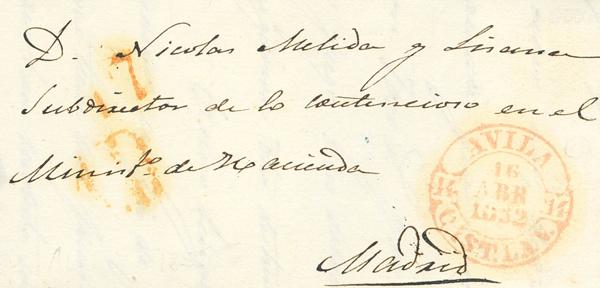 D. Nicolas Melida y Lisana
Subdirector de lo Contencioso en el
Minist.o de Hacienda
Madrid
AVILA
16
ABR
1852
14 14
CAST.LA V.